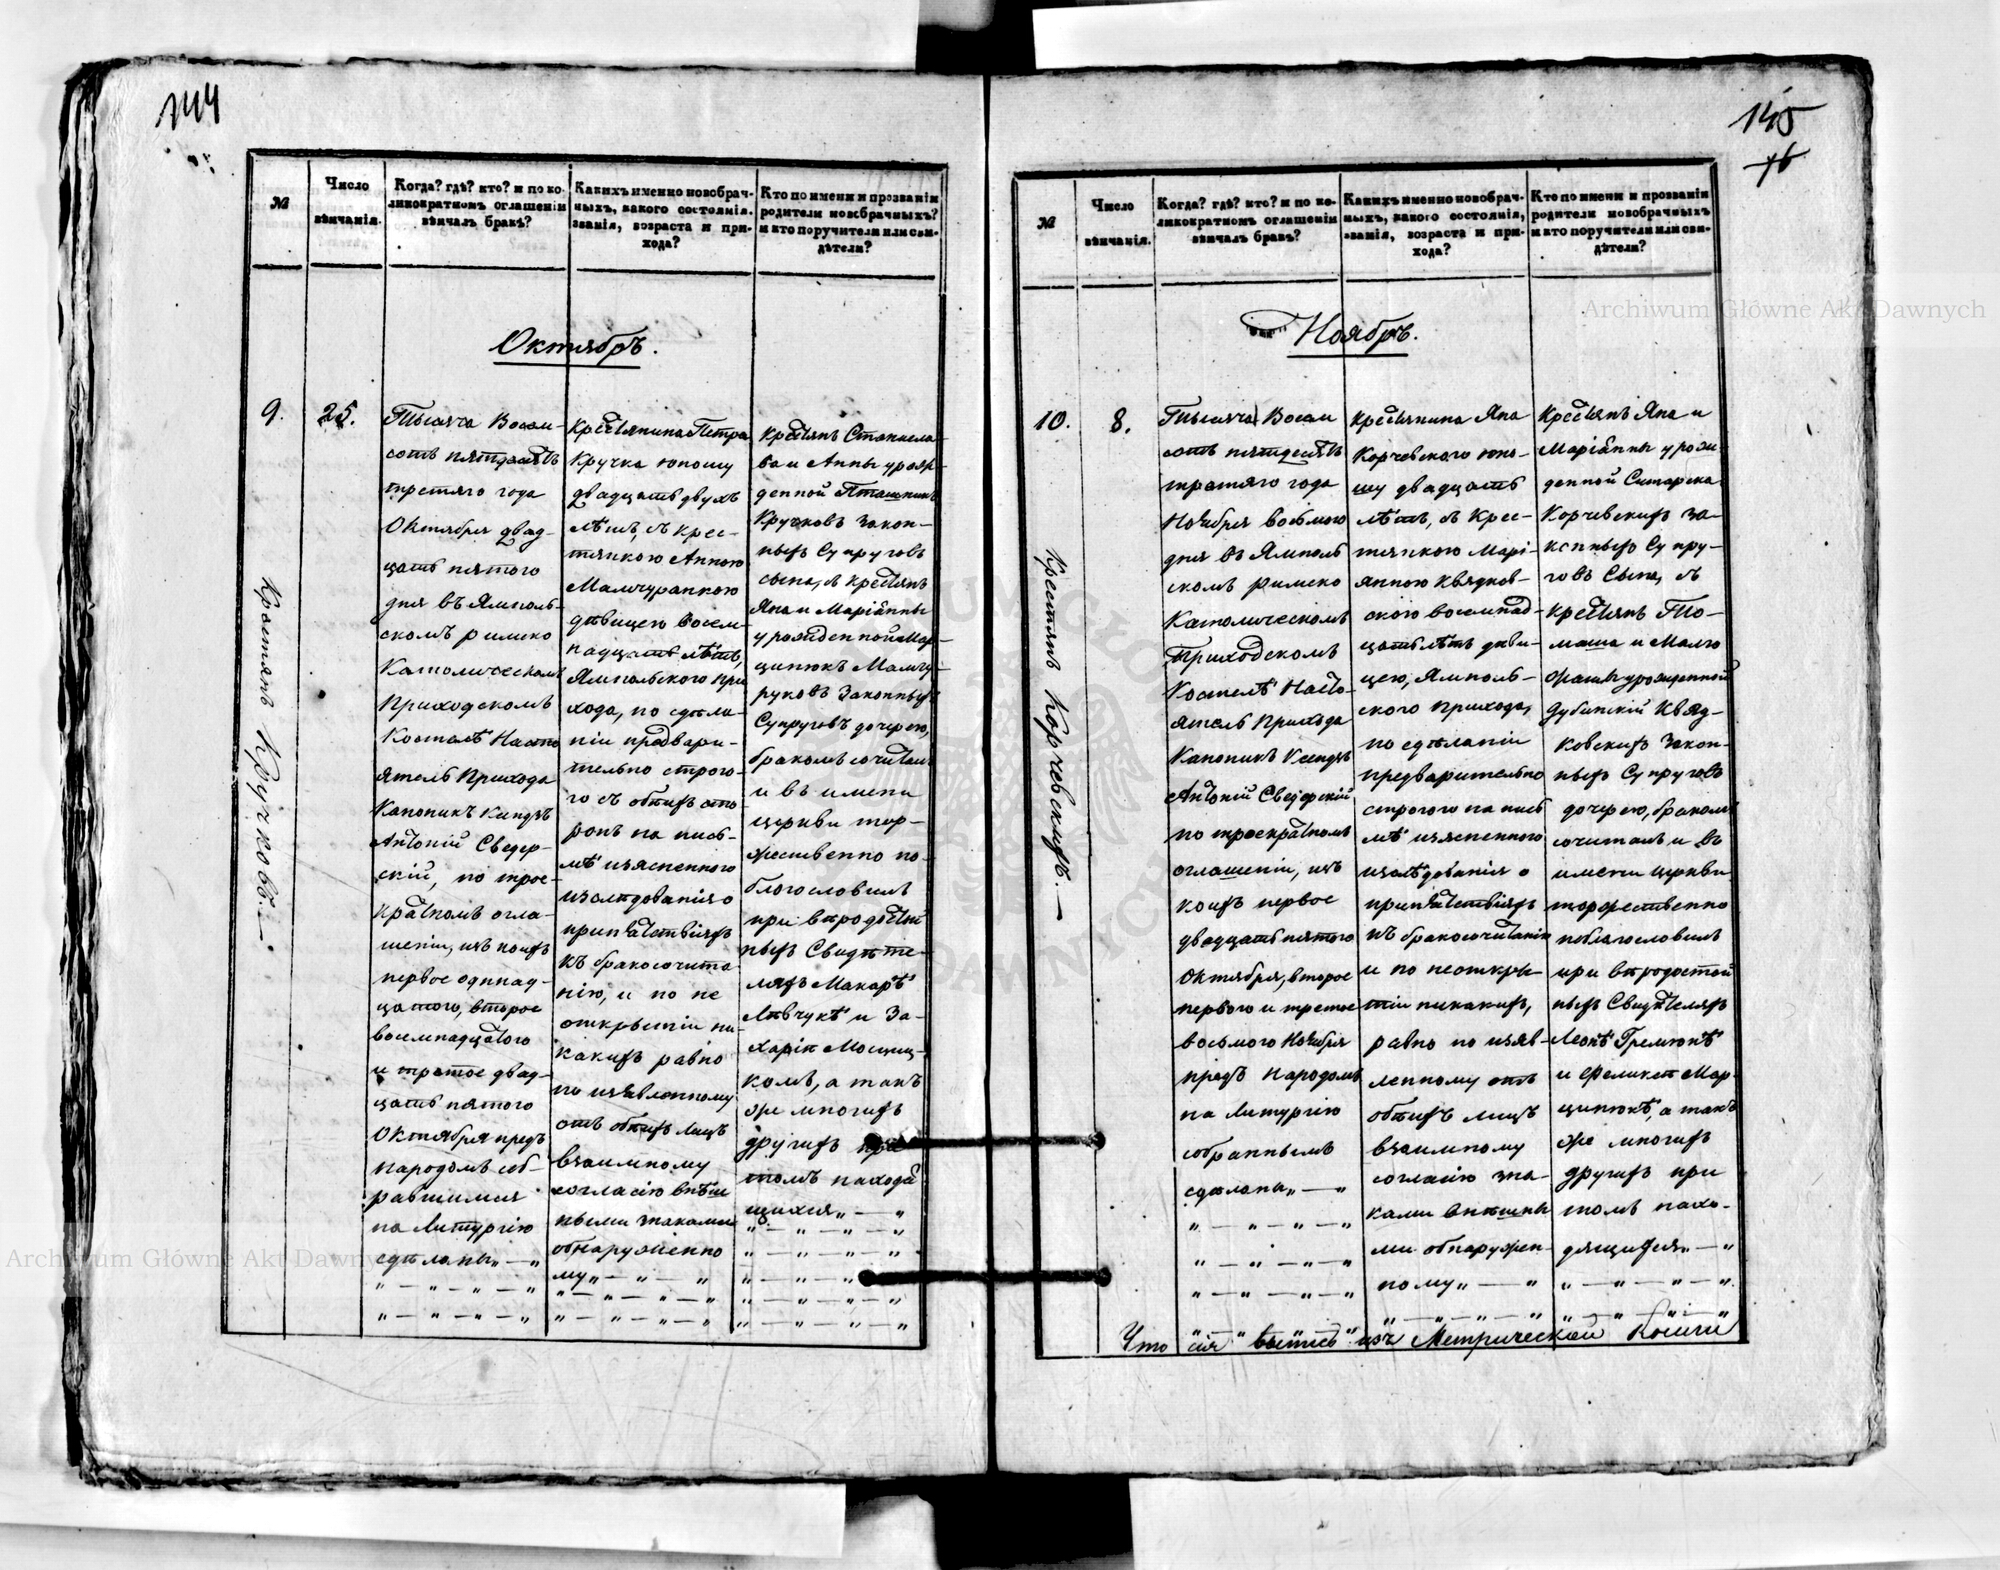 144
№
Число
вѣнчанія.
Когда? гдѣ? кто? и по ко-
ликократномъ оглашеніи
вѣнчалъ бракъ?
Какихъ именно новобрач-
ныхъ, какого состоянія,
званія, возраста и при-
хода?
Кто по имени и прозванію
родители новобрачныхъ?
и кто поручители или сви-
дѣтели?
Октябрь.
9.
25.
Крестянъ Кручковъ.—
Тысяча Восем-
сотъ пятдесятъ
третяго года
Октября двад-
цать пятого
дня въ Ямполь-
скомъ римско
Католическомъ
Приходскомъ
Костелѣ Насто
ятель Прихода
Каноникъ Ксендзъ
Антоній Сведер-
скій, по трое-
кратномъ огла-
шеніи, изъ коихъ
первое одинад-
цатого, второе
восемнадцатого
и третое двад-
цать пятого
Октября предъ
народомъ соб-
равшимся
на Литургію
сдѣланы„ — „
„ — „ — „ — „
„ — „ — „ — „
Крестянина Петра
Кручка юношу
двадцать двухъ
лѣтъ, съ Крес-
тянкою Анною
Мамчуранкою
дѣвицею восем-
надцать лѣтъ,
Ямпольского при
хода, по сдѣла-
ніи предвари-
тельно строго-
го съ обѣихъ сто
ронъ на пись-
мѣ изясненного
изслѣдованія о
припятствіяхъ
къ бракосочита-
нію, и по не
открытіи ни-
какихъ равно
по изявленному
отъ обѣихъ лицъ
взаимному
согласію внѣш
ными знаками
обнаруженно
му„ — „ — „
„ — „ — „ — „
„ — „ — „ — „
Крестянъ Станисла-
ва и Анны урож-
денной Пташникъ
Кручковъ Закон-
ныхъ Супруговъ
сына, съ крестянъ
Яна и Маріанны
урожденной Мар-
цинюкъ Мамчу-
руковъ Законныхъ
Супруговъ дочерею,
бракомъ сочиталъ
и въ имени
церкви тор-
жественно по-
благословилъ
при вѣродостой
ныхъ Свидѣте-
ляхъ Макарѣ
Левчукѣ и За-
харіи Мосциц-
комъ, а такъ
же многихъ
другихъ при
томъ находя
щихся„ — „
„ — „ — „ — „
„ — „ — „ — „
„ — „ — „
„ — „ — „ — „
„ — „ — „ — „
145
76
№
Число
вѣнчанія.
Когда? гдѣ? кто? и по ко-
ликократномъ оглашеніи
вѣнчалъ бракъ?
Какихъ именно новобрач-
ныхъ, какого состоянія,
званія, возраста и при-
хода?
Кто по имени и прозванію
родители новобрачныхъ
и кто поручители или сви-
дѣтели?
Ноябрь.
10.
8.
Крестянъ Корчевскихъ.—
Тысяча Восем
сотъ пятдесятъ
третяго года
Ноября восьмого
дня въ Ямполь
скомъ римско
Католическомъ
Приходскомъ
Костелѣ Насто-
ятель Прихода
Каноникъ Ксендзъ
Антоній Сведерскій
по троекратномъ
оглашеніи, изъ
коихъ первое
двадцать пятого
Октября, второе
первого и третое
восьмого Ноября
предъ Народомъ
на Литургію
собраннымъ
сдѣланы„ — „
„ — „ — „ — „
„ — „ — „
„ — „ — „ — „
Крестянина Яна
Корчевского юно-
шу двадцать
лѣтъ, съ Крес-
тянкою Марі-
анною Квядков-
скою восемнад-
цать лѣтъ дѣви-
цею, Ямполь-
ского прихода,
по сдѣланіи
предварительно
строгого на пись
мѣ изясненного
изслѣдованія о
припятствіяхъ
къ бракосочитанію
и по неоткры-
тіи никакихъ,
равно по изяв-
ленному отъ
обѣихъ лицъ
взаимному
согласію зна-
ками внѣшны
ми обнаружен-
ному„ — „
„ — „ — „ — „
Крестянъ Яна и
Маріанны урож-
денной Ситарска
Корчевскихъ За-
конныхъ Супру-
говъ Сына, съ
Крестянъ То-
маша и Малго
ржаты урожденной
Дубинскій Квяд-
ковскихъ Закон-
ныхъ Супруговъ
дочерею, бракомъ
сочиталъ и въ
имени церкви
торжественно
поблагословилъ
при вѣродостой
ныхъ Свидѣтеляхъ
Леонѣ Гремюкѣ
и Феликсѣ Мар-
цинюкѣ, а такъ
же многихъ
другихъ при
томъ нахо-
дящихся„ — „
„ — „ — „ — „
„ — „ — „ — „
Что сія выпись изъ Метрической Книги
Archiwum Główne Akt Dawnych
Archiwum Główne Akt Dawnych